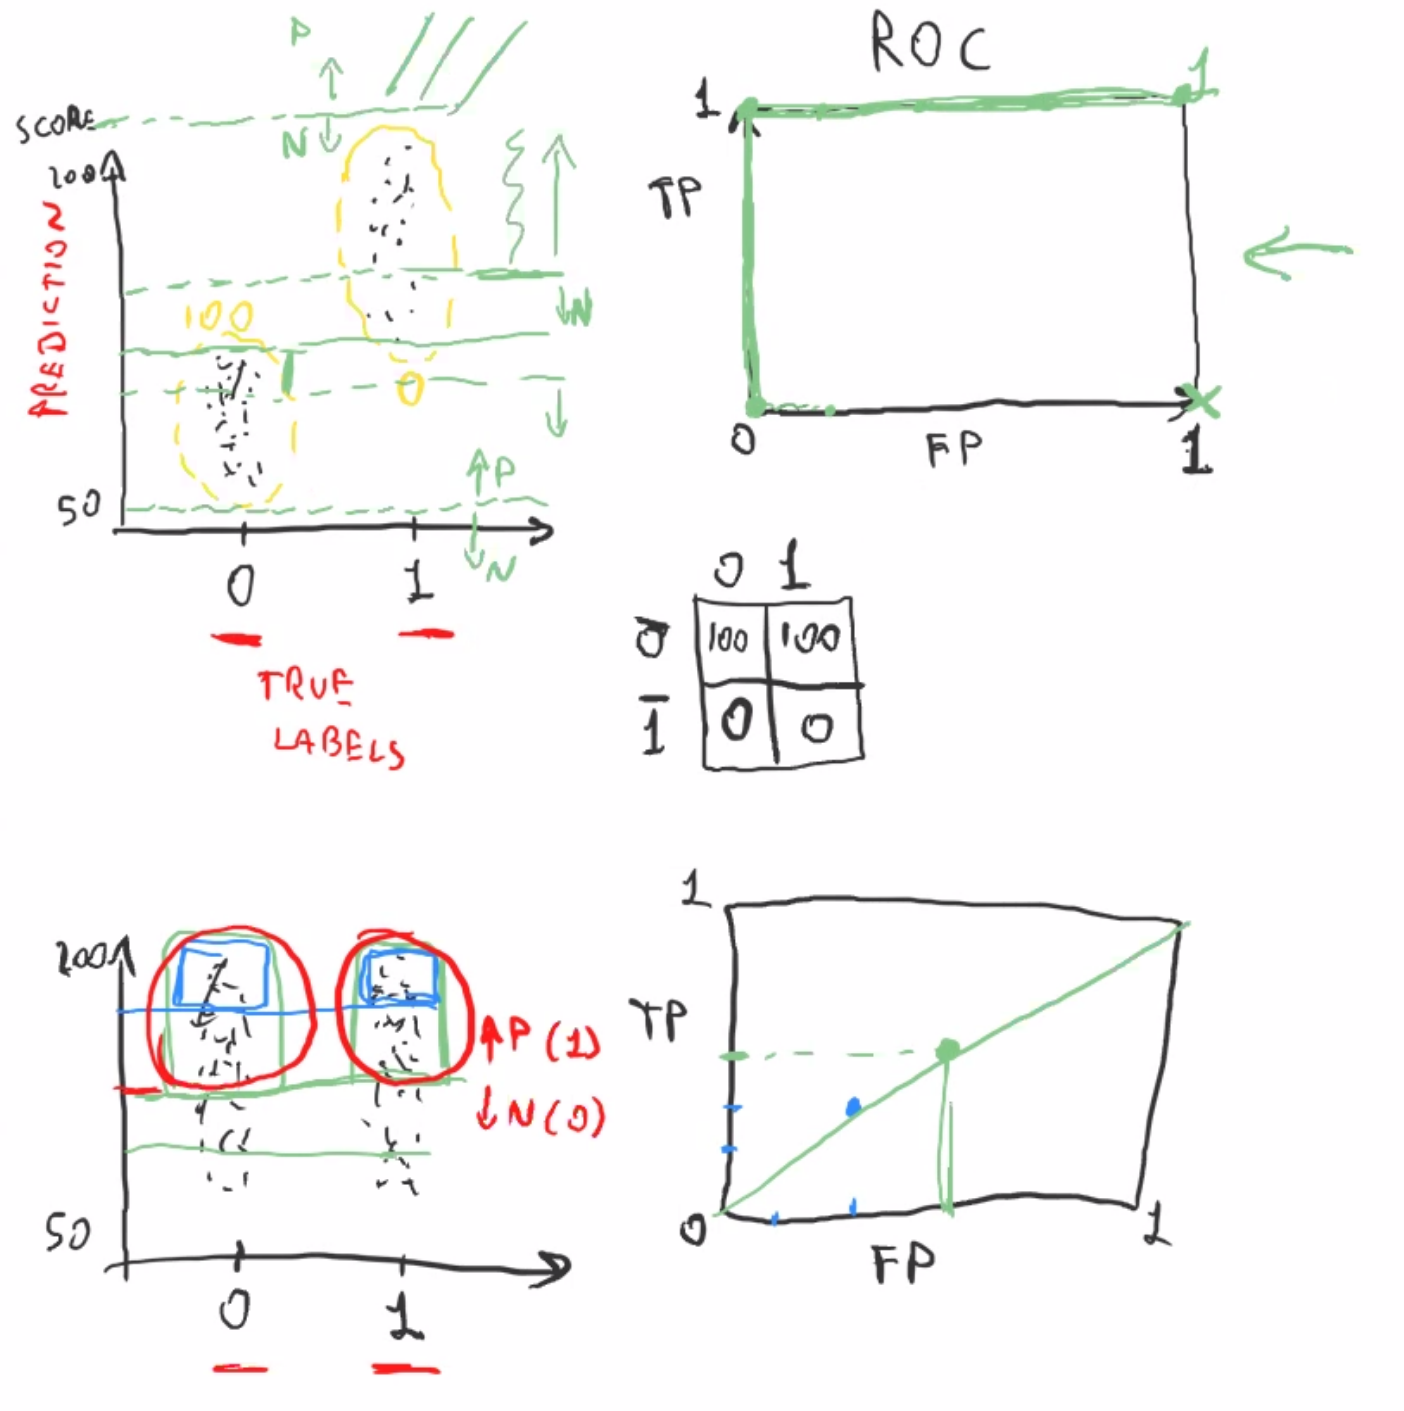 ROC
P
SCORE
N
100
PREDICTION
N
100
0
P
50
N
0 1
TRUE
LABELS
1 1
TP
0 FP 1
0 1
0 100 100
1 0 0
100
P (1)
N (0)
50
0 1
1
TP
0 FP 1